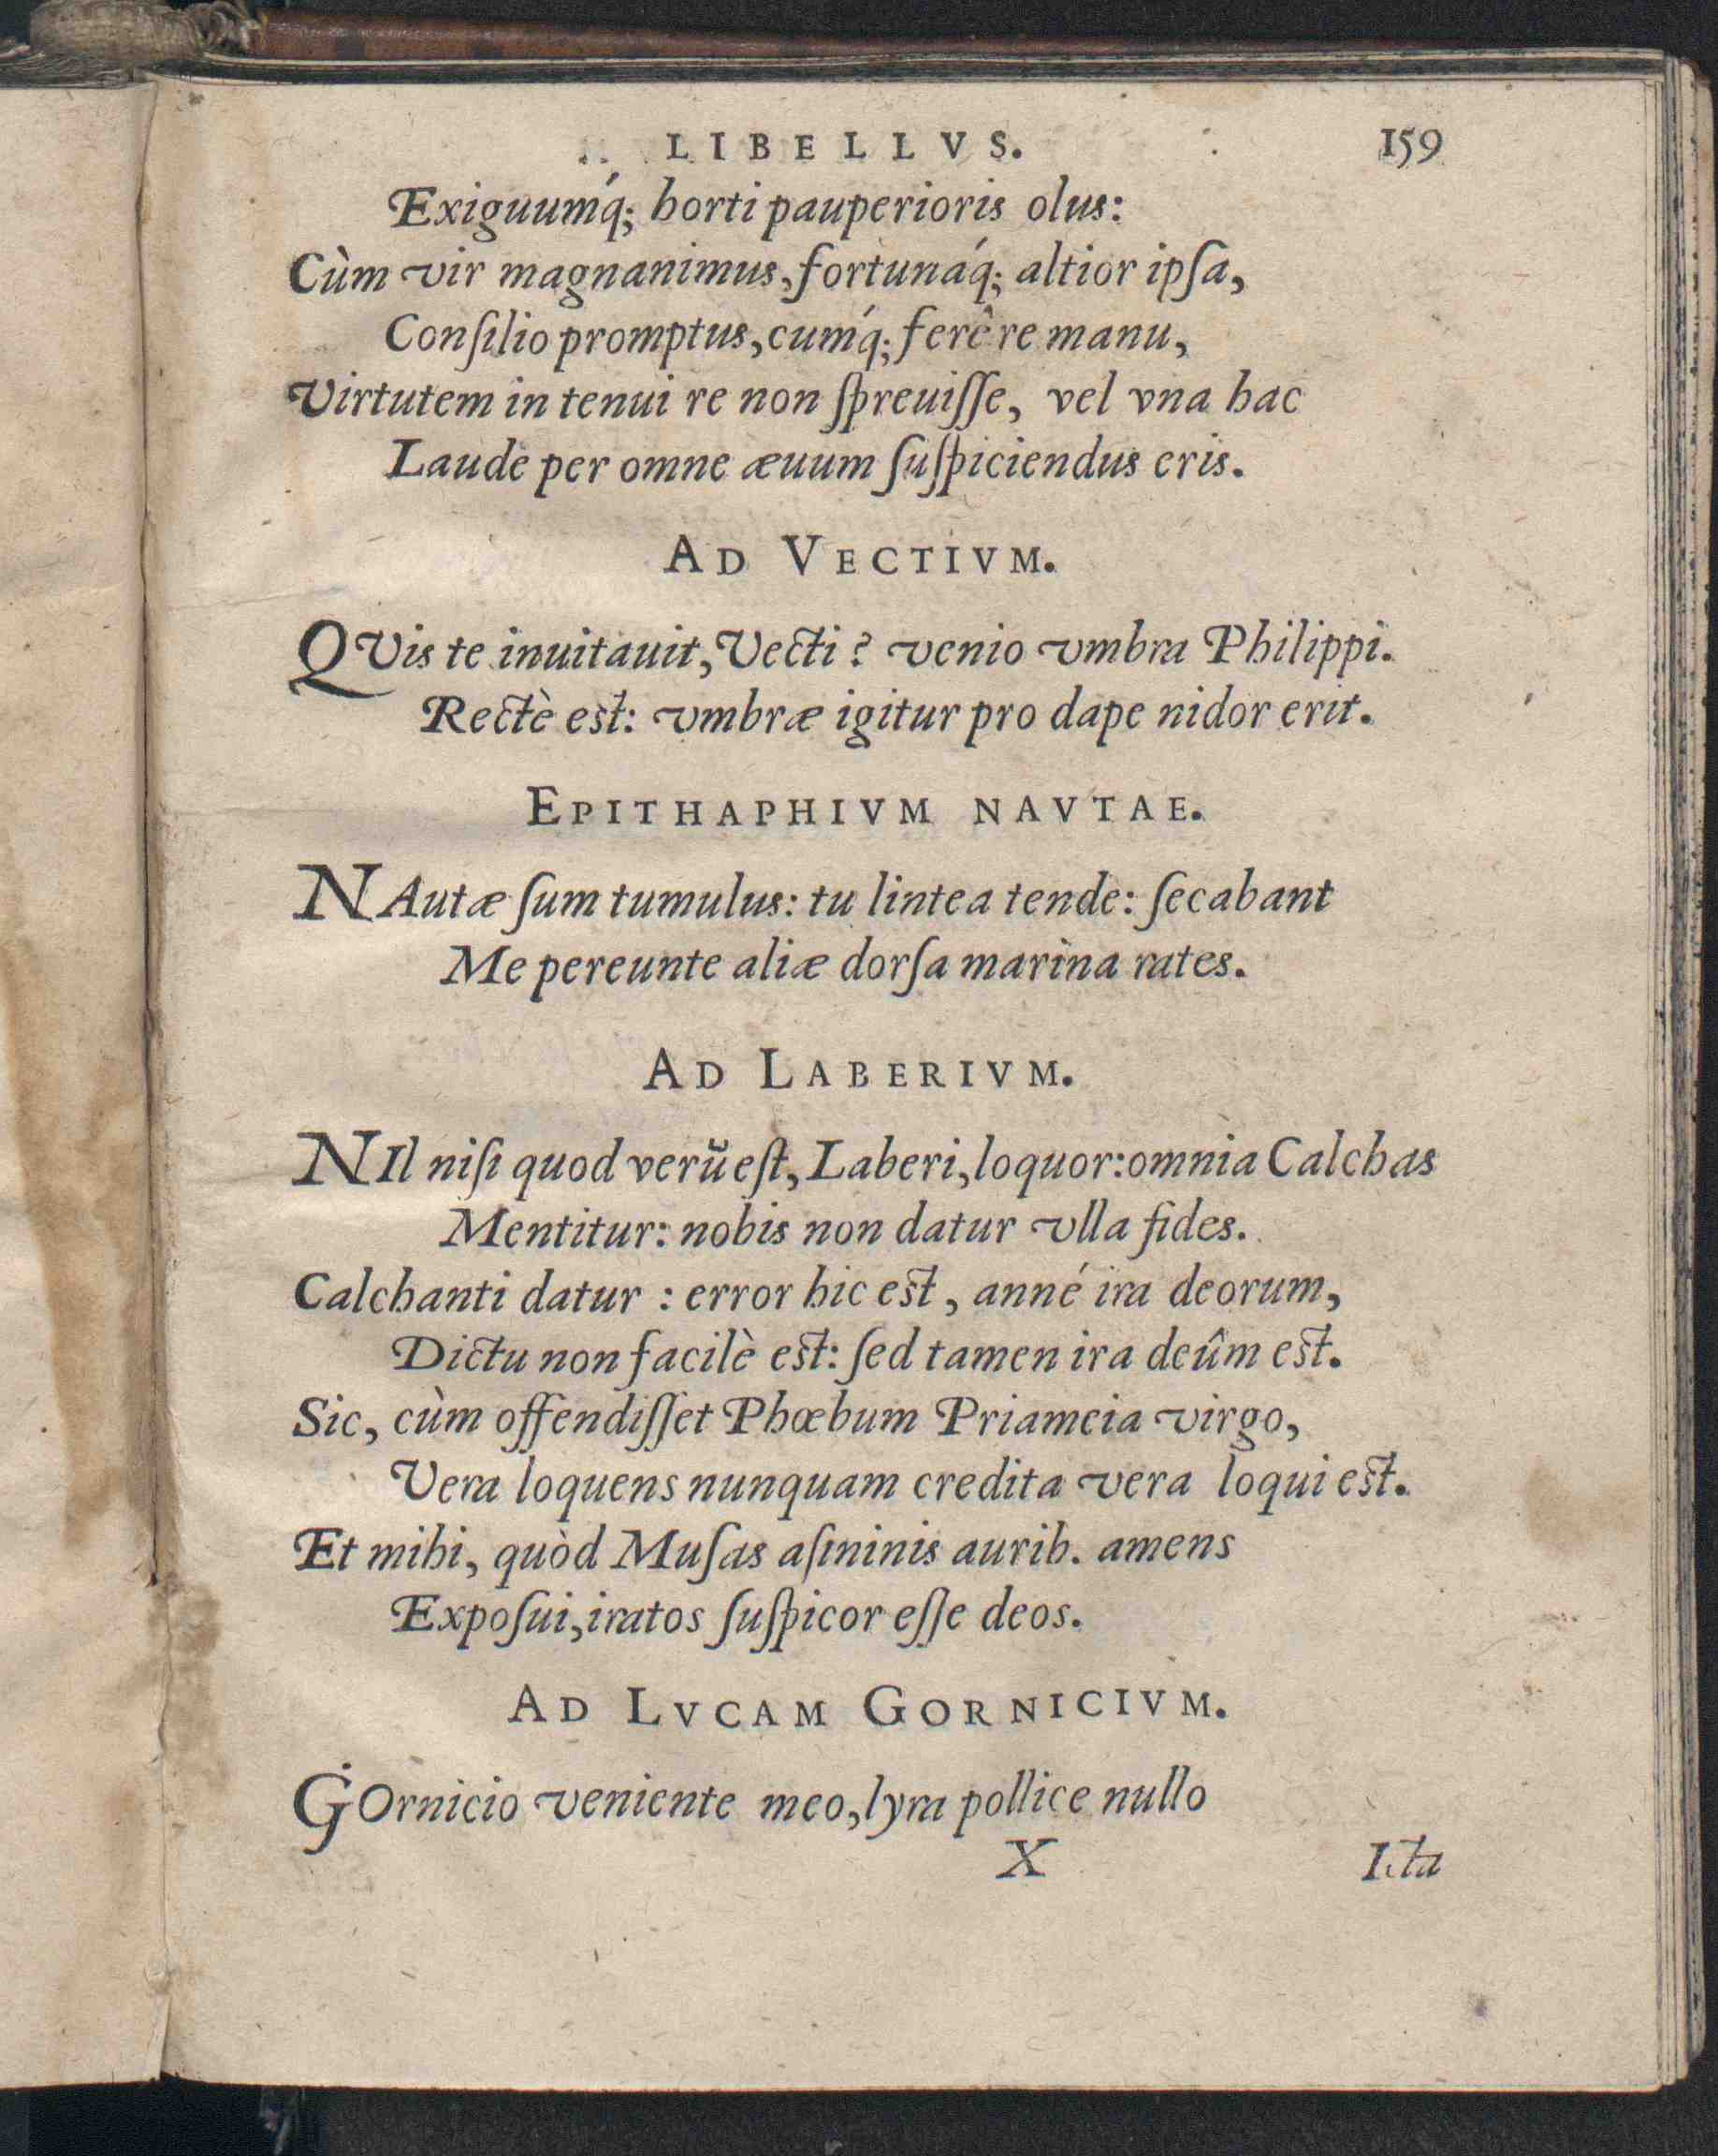 LIBELLVS. 159
Exiguumq́; horti pauperioris olus:
Cùm vir magnanimus, fortunáq; altior ipſa,
Conſilio promptus, cumq́; ferê re manu,
Virtutem in tenui re non ſpreuiſſe, vel vna hac
Laude per omne æuum ſuſpiciendus eris.
AD VECTIVM.
QVis te inuitauit, Vecti? venio vmbra Philippi.
Rectè est: vmbræ igitur pro dape nidor erit.
EPITHAPHIVM NAVTAE.
NAutæ ſum tumulus: tu lintea tende: ſecabant
Me pereunte aliæ dorſa marina rates.
AD LABERIVM.
NIl niſi quod verũ eſt, Laberi, loquor: omnia Calchas
Mentitur: nobis non datur vlla fides.
Calchanti datur : error hic est, anné ira deorum,
Dictu non facilè est: ſed tamen ira deûm est.
Sic, cùm offendiſſet Phœbum Priameia virgo,
Vera loquens nunquam credita vera loqui est.
Et mihi, quòd Muſas aſininis aurib. amens
Expoſui, iratos ſuſpicor eſſe deos.
AD LVCAM GORNICIVM.
GOrnicio veniente meo, lyra pollice nullo
X Icta